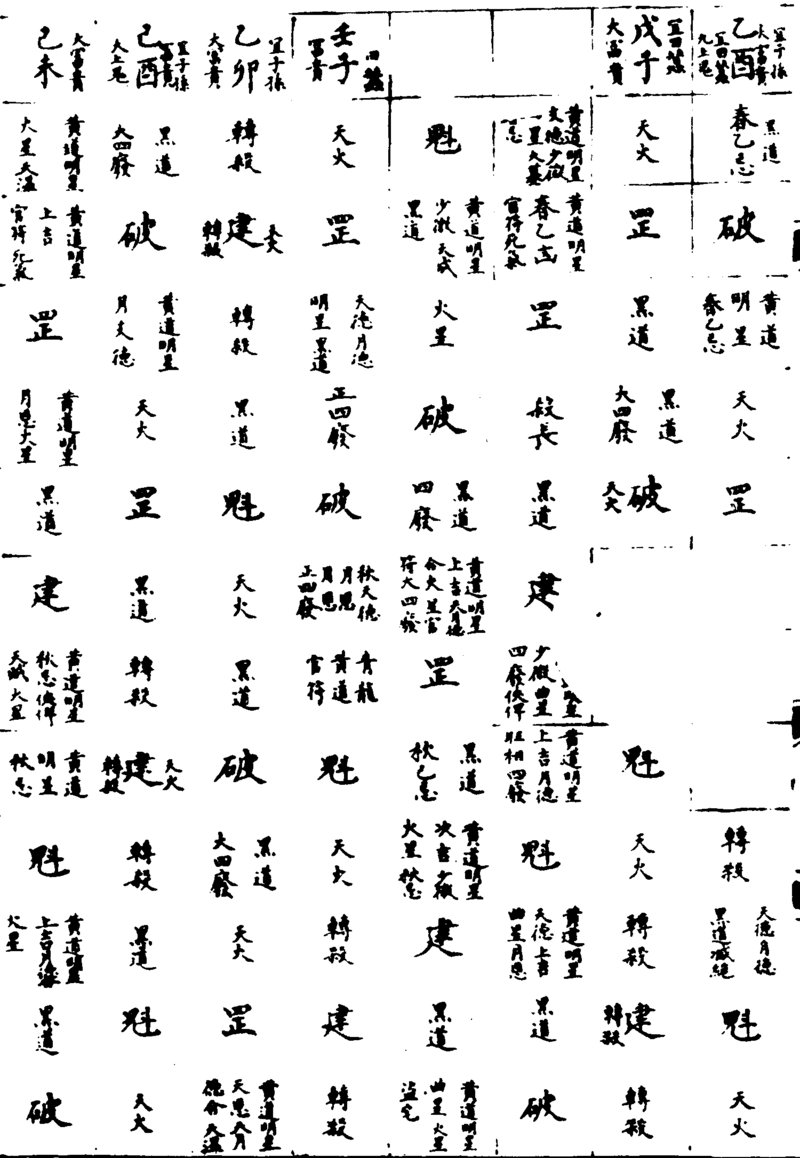 宜子孫
大富貴
乙酉
宜田蚕
九上冤
黑道
春乙忌
破
黄道
明星
春乙忌
天火
罡
轉殺
天德月德
黑道滅絕
魁
天火
宜田蚕
戊子
大富貴
天火
罡
黑道
黑道
大四廢
破
天火
魁
天火
轉殺
建
轉殺
轉殺
黄道明星
文德少微
黄道明星
官符死氣
罡
殺長
黑道
建
少微曲星
四廢伏倖
黄道明星
上吉月德
旺相四廢
魁
黄道明星
天德上吉
曲星月恩
黑道
破
魁
黄道明星
少微天成
黑道
火星
破
黑道
四廢
黄道明星
上吉天月德
合火星官
符大四廢
罡
黑道
秋乙忌
黄道明星
次吉少微
火星秋忌
建
黑道
黄道明星
曲星火星
田蚕
壬子
富貴
天火
罡
天德月德
明星黑道
正四廢
破
秋天德
月恩
月恩
正四廢
青龍
黄道
官符
魁
天火
轉殺
建
轉殺
宜子孫
乙卯
大富貴
轉殺
天火
建
轉殺
轉殺
黑道
魁
天火
黑道
破
黑道
大四廢
天火
罡
黄道明星
天恩天月
德合天温
宜子孫
富貴
己酉
大上冤
黑道
大四廢
破
黄道明星
月支德
天火
罡
黑道
轉殺
天火
建
轉殺
轉殺
黑道
魁
天火
大富貴
己未
黄道明星
火星天温
黄道明星
上吉
官符死氣
罡
黄道明星
月恩火星
黑道
建
黄道明星
秋忌伏倖
天賊火星
黄道
明星
秋忌
魁
黄道明星
火星
黑道
破